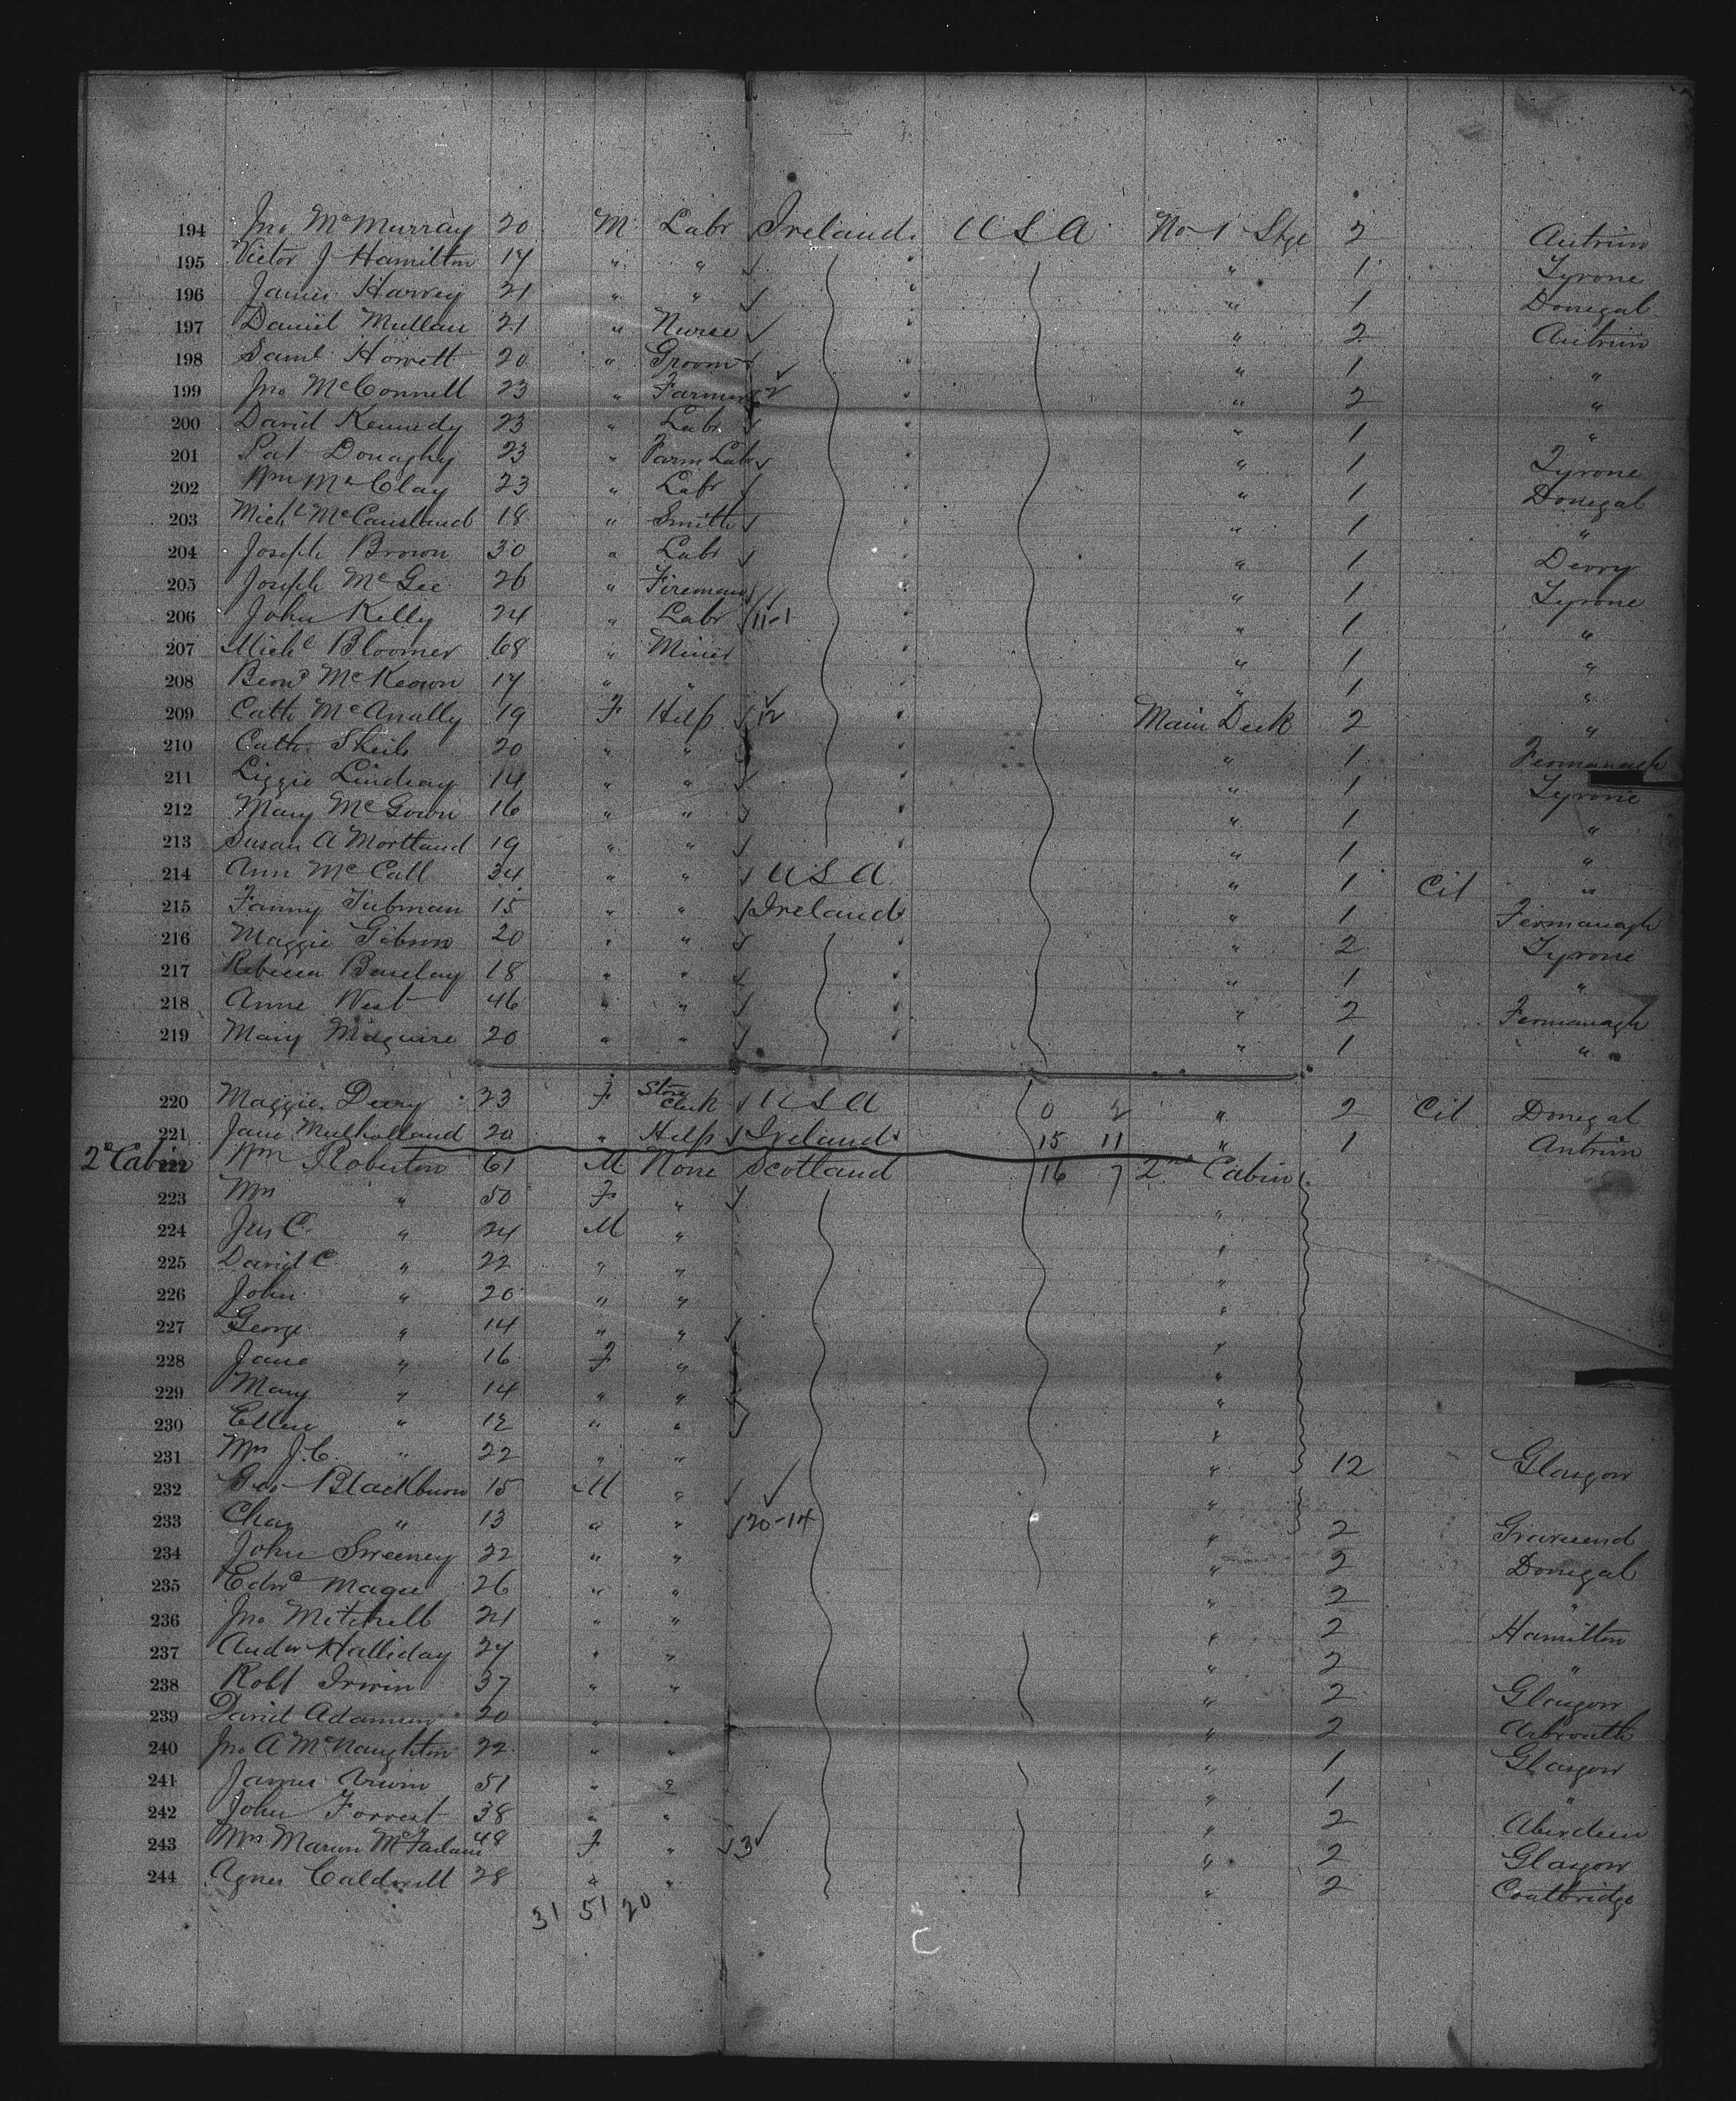 194 Jno McMurray 20 M Labr Ireland USA No 1 Stge 2 Antrim
195 Victor J Hamilton 17 " " " " 1 Tyrone
196 James Harvey 21 " " " " 1 Donegal
197 Daniel Mullan 21 " Nurse " " 2 Antrim
198 Saml Howett 20 " Groom " " 1 "
199 Jno McConnell 23 " Farmer 2 " " 2 "
200 David Kennedy 23 " Labr " " 1 "
201 Pat Donaghy 23 " Farm Labr " " 1 Tyrone
202 Wm McClay 23 " Labr " " 1 Donegal
203 Michl McCausland 18 " Smith " " 1 "
204 Joseph Brown 30 " Labr " " 1 Derry
205 Joseph McGee 26 " Fireman " " 1 Tyrone
206 John Kelly 24 " Labr 11-1 " " 1 "
207 Michl Bloomer 68 " Miner " " 1 "
208 Bernd McKeown 17 " " " " 1 "
209 Cath McAnally 19 F Help 12 " Main Deck 2 "
210 Cath Sheils 20 " " " " 1 Fermanagh
211 Lizzie Lindsay 14 " " " " 1 Tyrone
212 Mary McGown 16 " " " " 1 "
213 Susan A Mortland 19 " " " 1 "
214 Ann McCall 34 " " USA " 1 Cit "
215 Fanny Tubman 15 " " Ireland " 1 Fermanagh
216 Maggie Gibson 20 " " " " 2 Tyrone
217 Rebecca Barclay 18 " " " " 1 "
218 Anne West 46 " " " " 2 Fermanagh
219 Mary Maguire 20 " " " " 1 "
220 Maggie Deery 23 F Store Clerk USA 0 2 " 2 Cit Donegal
221 Jane Mulholland 20 " Help Ireland 15 11 " 1 Antrim
2d Cabin 222 Wm Roberton 61 M None Scotland 16 7 2nd Cabin
223 Mrs " 50 F " "
224 Jas C. " 24 M " "
225 David C " 22 " " "
226 John " 20 " " "
227 George " 14 " " "
228 Jane " 16 F " "
229 Mary " 14 " " "
230 Ellen " 12 " " "
231 Mrs J.C. " 22 " " " 12 Glasgow
232 Geo Blackburn 15 M " "
233 Chas " 13 " " 20-14 " 2 Gravesend
234 John Sweeney 22 " " " 2 Donegal
235 Edwd Magee 26 " " " 2 "
236 Jno Mitchell 21 " " " 2 Hamilton
237 Andw Halliday 27 " " " 2 "
238 Robt Irwin 37 " " " 2 Glasgow
239 David Adamson 20 " " " 2 Arbroath
240 Jno A McNaughton 22 " " " 1 Glasgow
241 James 51 " " " 1 "
242 John Forrest 38 " " " 2 Aberdeen
243 Mrs Marion McFarlane 48 F " 3 " 2 Glasgow
244 Agnes Caldwell 28 " " " 2 Coatbridge
31 51 20
C